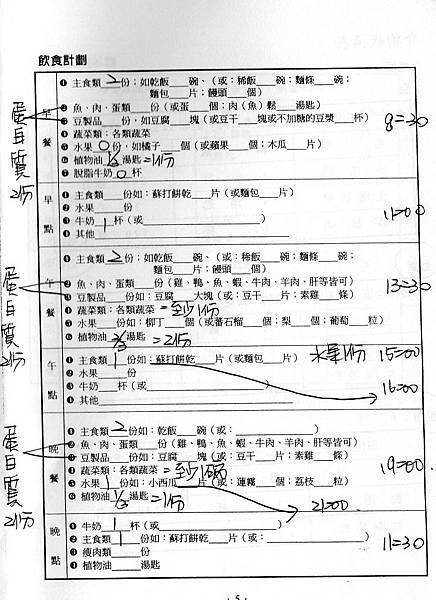 飲食計劃
早餐
蛋白質2份
8=30
❶ 主食類 2 份；如乾飯__碗、（或：稀飯__碗；麵條__碗；
麵包__片；饅頭__個）
❷ 魚、肉、蛋類__份（或蛋__個；肉（魚）鬆__湯匙）
❸ 豆製品__份，如豆腐__塊（或豆干__塊或不加糖的豆漿__杯）
❹ 蔬菜類：各類蔬菜
❺ 水果 0 份，如橘子__個（或蘋果__個；木瓜__片）
❻ 植物油 1/3 湯匙=1份
❼ 脫脂牛奶 0 杯
早點
11=00
❶ 主食類__份如：蘇打餅乾__片（或麵包__片）
❷ 水果__份
❸ 牛奶 1 杯（或__）
❹ 其他__
午餐
蛋白質2份
13=30
❶ 主食類 2 份；如乾飯__碗、（或：稀飯__碗；麵條__碗；
麵包__片；饅頭__個）
❷ 魚、肉、蛋類__份（雞、鴨、魚、蝦、牛肉、羊肉、肝等皆可）
❸ 豆製品__份如：豆腐__大塊（或：豆干__片；素雞__條）
❹ 蔬菜類：各類蔬菜=至少1份
❺ 水果__份如：柳丁__個（或蕃石榴__個；梨__個；葡萄__粒）
❻ 植物油 2/3 湯匙=2份
午點
水果1份 15=00
16=00
❶ 主食類 1 份如：蘇打餅乾__片（或麵包__片）
❷ 水果__份
❸ 牛奶__杯（或__）
❹ 其他__
晚餐
蛋白質2份
19=00
❶ 主食類 2 份如：乾飯__碗（或：__）
❷ 魚、肉、蛋類__份（雞、鴨、魚、蝦、牛肉、羊肉、肝等皆可）
❸ 豆製品__份如：豆腐__塊（或：豆干__片；素雞__條）
❹ 蔬菜類：各類蔬菜=至少1碗
❺ 水果 1 份如：小西瓜__片（或：蓮霧__個；荔枝__粒）
❻ 植物油 1/3 湯匙=1份
21=00
晚點
11=30
❶ 牛奶 1 杯（或__）
❷ 主食類 1 份如：蘇打餅乾__片（或：__）
❸ 瘦肉類__份
❹ 植物油__湯匙
. 5 .